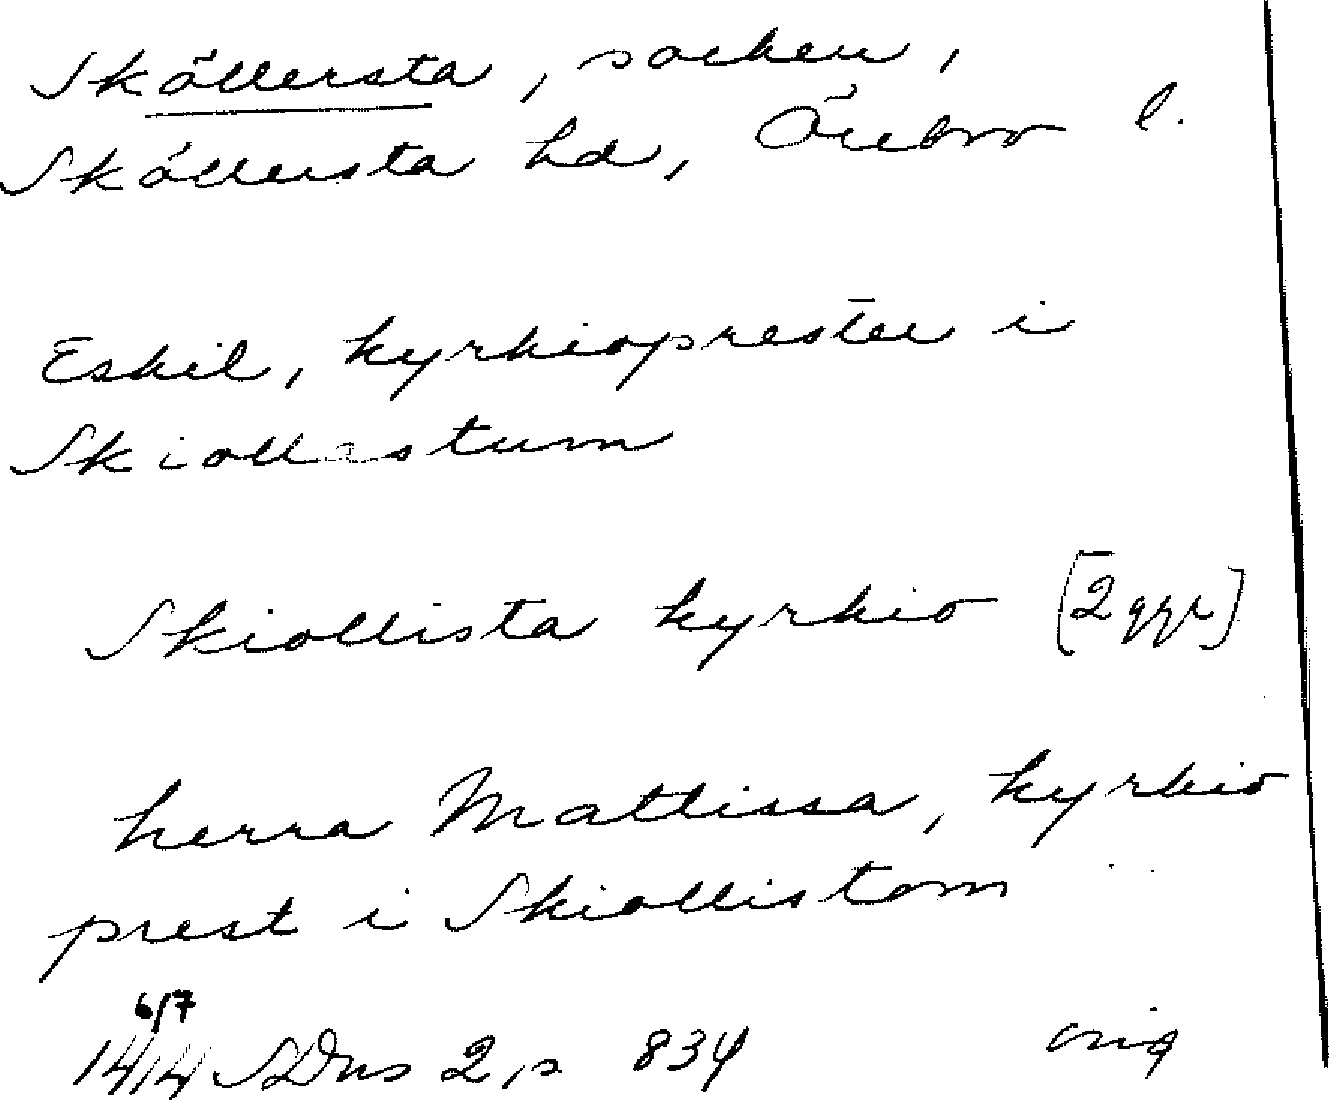 Sköllersta, socken,
Sköllersta hd, Örebro l.
Eskil, kyrkioprester i
Skiollastum
Skiollista kyrkio [2 ggr]
herra Mattissa, kyrkio
prest i Skiollistom
6/7
1414 SDns 2, s 834 orig